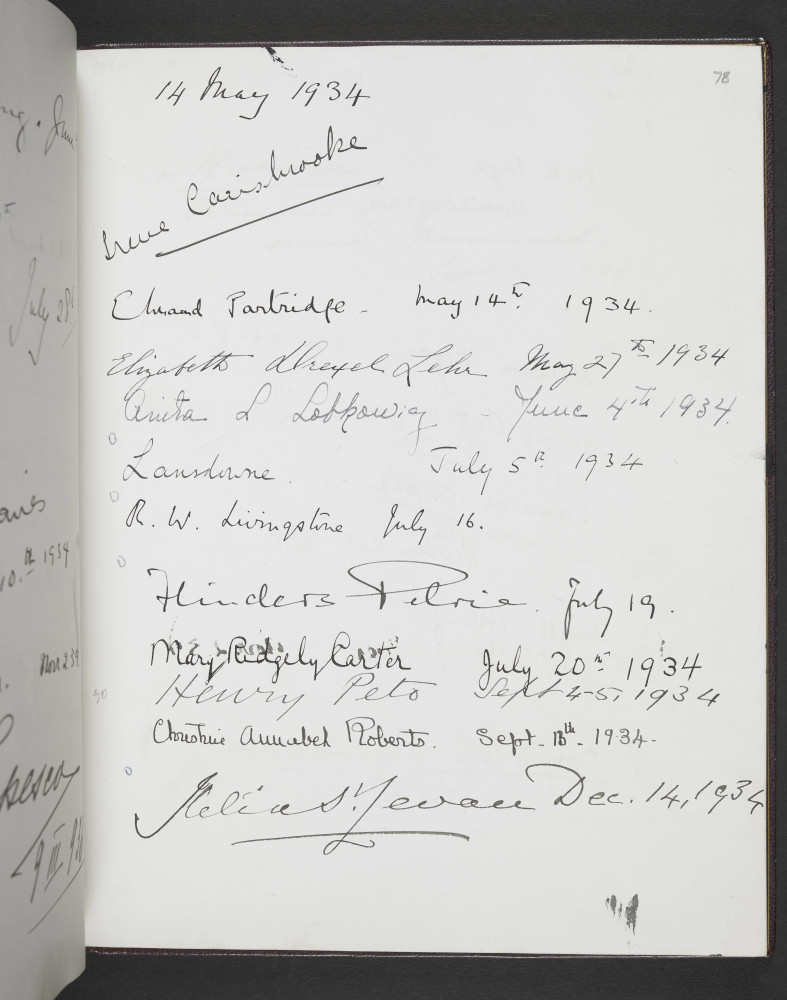 78
14 May 1934
Irene Carisbrooke
Edward Partridge - May 14th 1934.
Elizabeth Drexel Lehr May 27th 1934
Anita L Lobkowicz - June 4th 1934.
Lansdowne. July 5th 1934
R. W. Livingstone July 16.
Flinders Petrie. July 19.
Mary Ridgely Carter July 20th 1934
Henry Peto Sept 4-5, 1934
Christine Annabel Roberts. Sept. 18th. 1934.
Dec. 14, 1934
July 28
10.th 1934